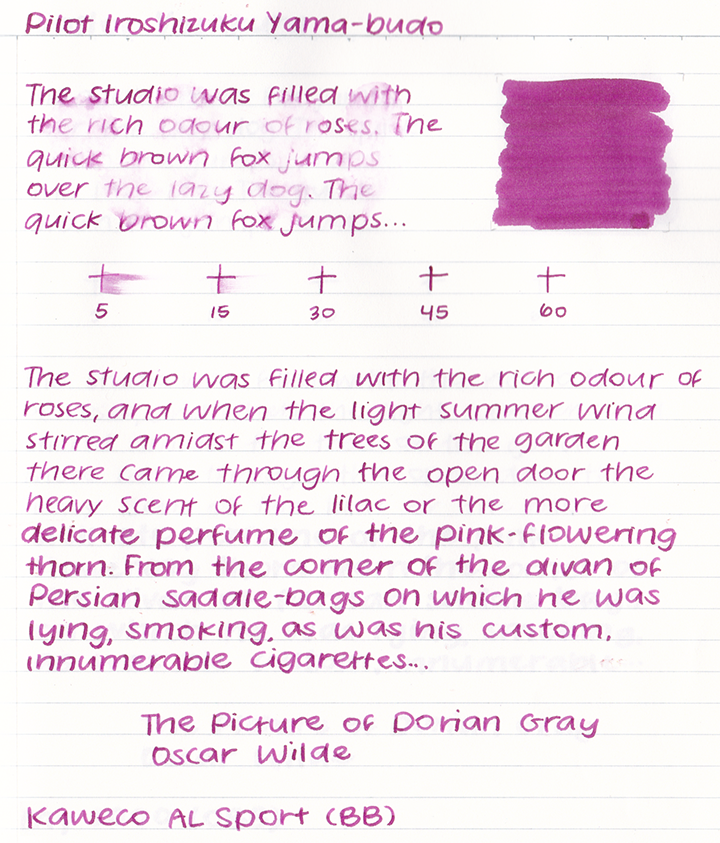 Pilot Iroshizuku Yama-budo
The studio was filled with
the rich odour of roses. The
quick brown fox jumps
over the lazy dog. The
quick brown fox jumps...
5 15 30 45 60
The studio was filled with the rich odour of
roses, and when the light summer wind
stirred amidst the trees of the garden
there came through the open door the
heavy scent of the lilac or the more
delicate perfume of the pink-flowering
thorn. From the corner of the divan of
Persian saddle-bags on which he was
lying, smoking, as was his custom,
innumerable cigarettes...
The Picture of Dorian Gray
Oscar Wilde
Kaweco AL Sport (BB)